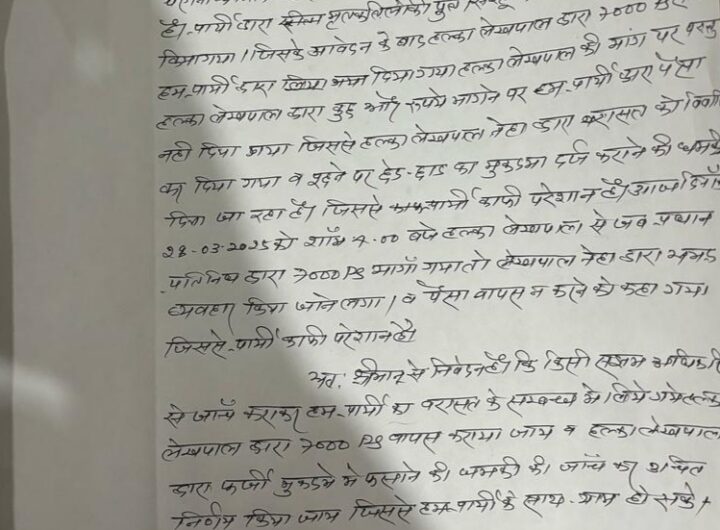 है। प्रार्थी द्वारा
किया गया। जिसके आवेदन के बाद हल्का लेखपाल द्वारा 7000 RS
हम प्रार्थी द्वारा दिया गया हल्का लेखपाल की मांग पर परन्तु
हल्का लेखपाल द्वारा कुछ और रुपये मांगने पर हम प्रार्थी द्वारा पैसा
नही दिया गया जिससे हल्का लेखपाल नेहा द्वारा वरासत को
कर दिया गया व पूछने पर का मुकदमा दर्ज कराने की धमकी
दिया जा रहा है। जिससे प्रार्थी काफी परेशान है। आज दिनाँक
28-03-2025 को शाँम 4.00 बजे हल्का लेखपाल से जब प्रधान
प्रतिनिधि द्वारा 7000 RS माँगा गया तो लेखपाल नेहा द्वारा अभद्र
व्यवहार किया जाने लगा। व पैसा वापस न करने को कहा गया
जिससे प्रार्थी काफी परेशान है।
अतः श्रीमान से निवेदन है। कि किसी सक्षम अधिकारी
से जाँच कराकर हम प्रार्थी का वरासत के सम्बन्ध मे लिये गये हल्का
लेखपाल द्वारा 7000 RS वापस कराया जाय व हल्का लेखपाल
द्वारा फर्जी मुकदमे मे फसाने की धमकी की जाँच कर उचित
निर्णय किया जाय जिससे हम प्रार्थी के साथ न्याय हो सके।